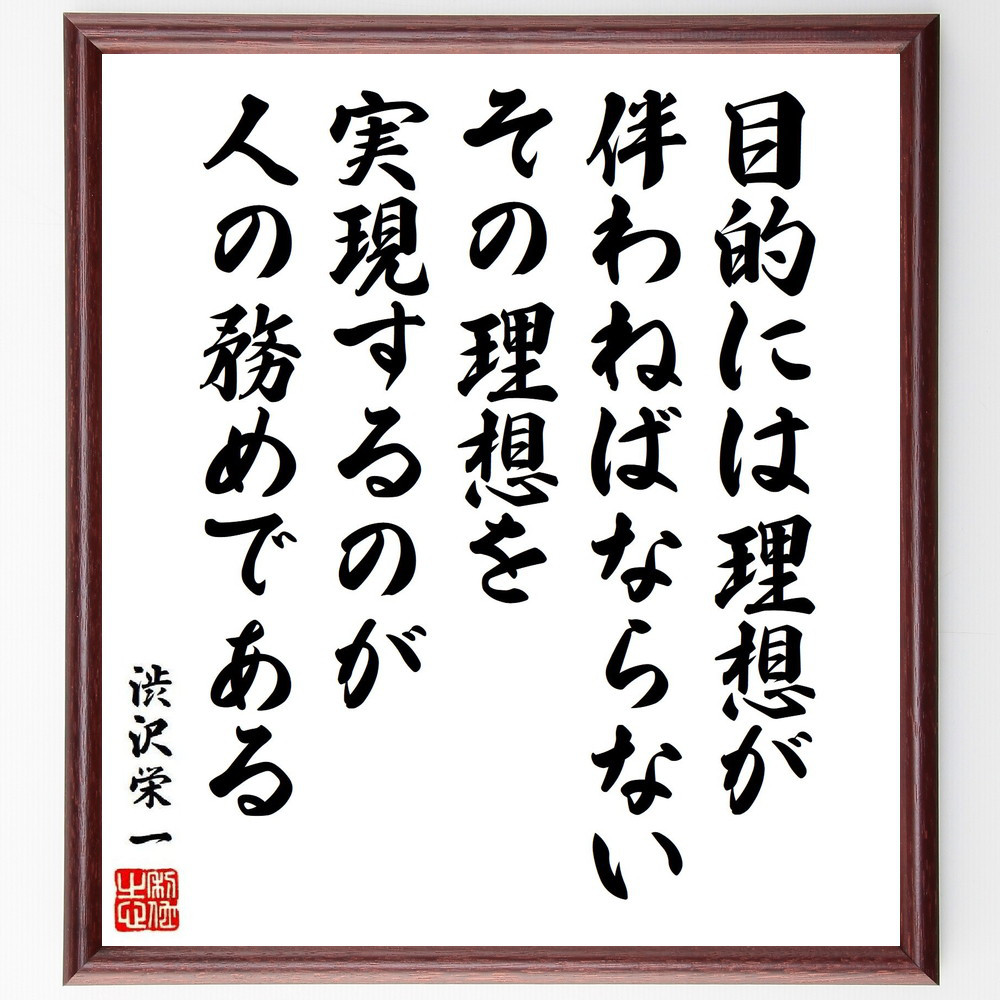 目的には理想が
伴わねばならない
その理想を
実現するのが
人の務めである
渋沢栄一